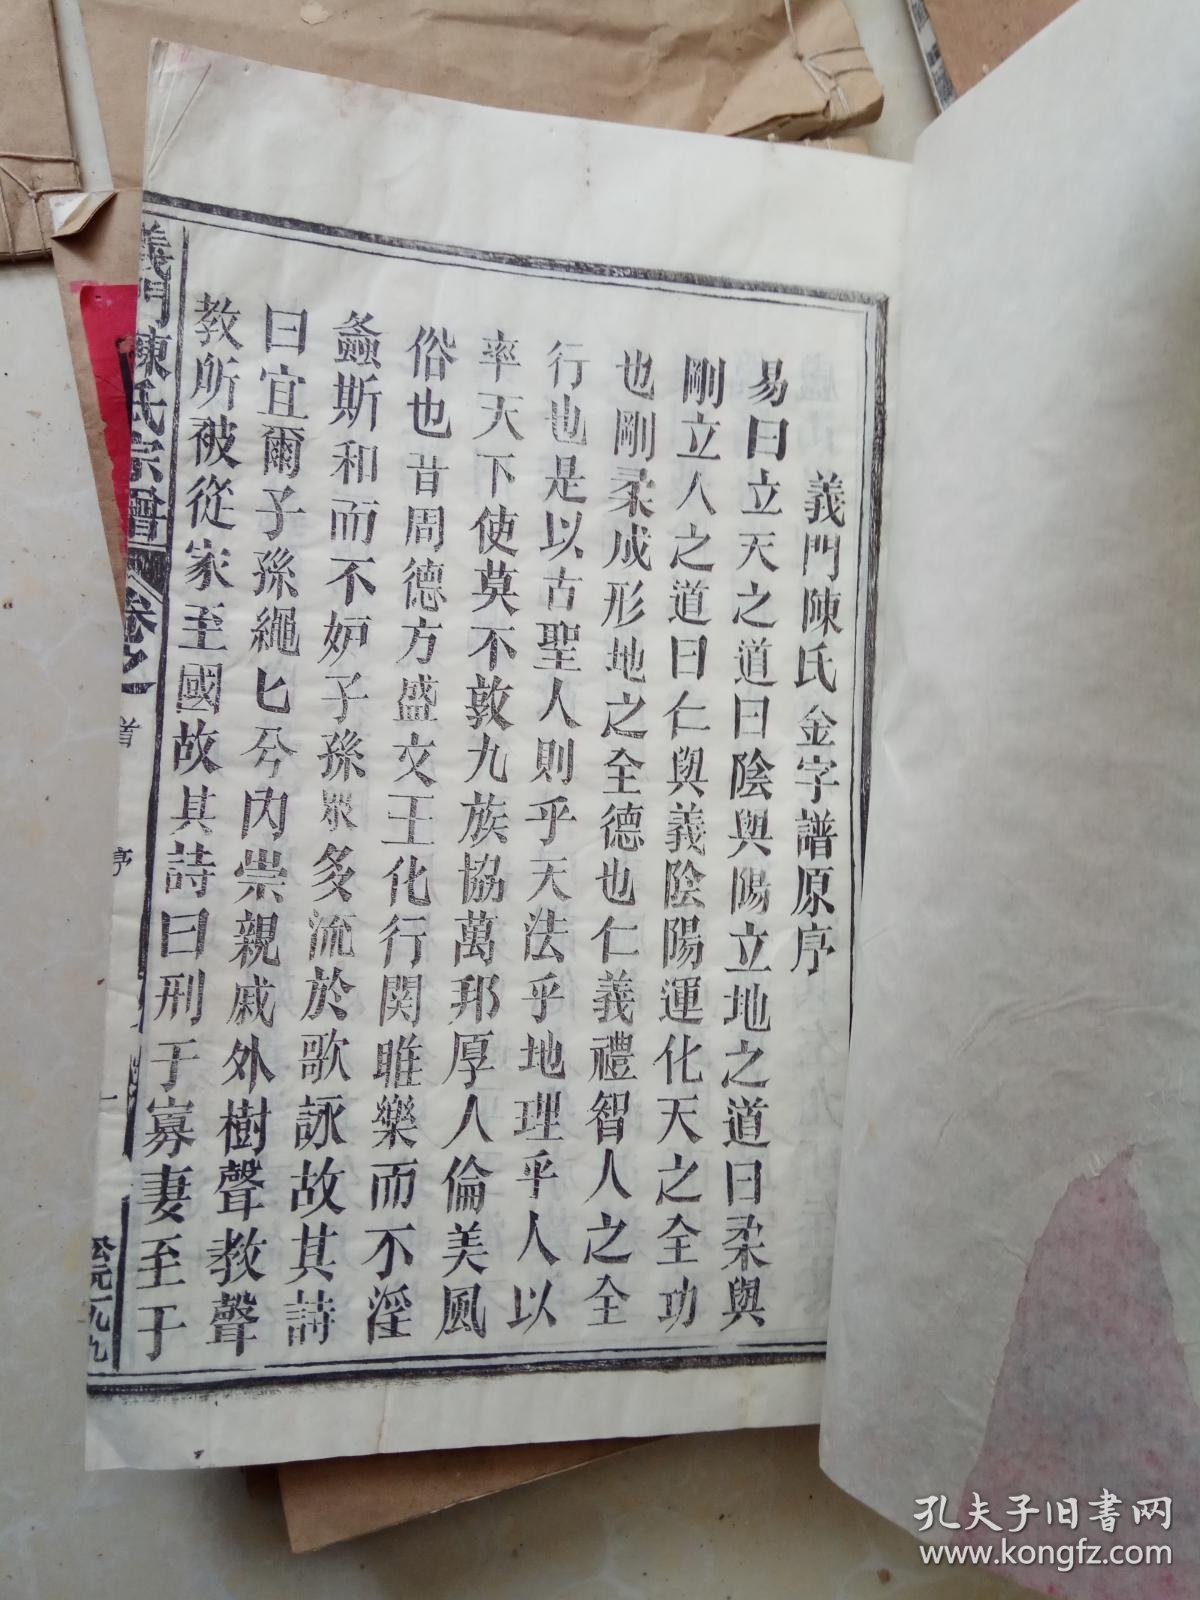 義門陳氏金字譜原序
易曰立天之道曰陰與陽立地之道曰柔與
剛立人之道曰仁與義陰陽運化天之全功
也剛柔成形地之全德也仁義禮智人之全
行也是以古聖人則乎天法乎地理乎人以
率天下使莫不敦九族協萬邦厚人倫美風
俗也昔周德方盛文王化行関雎樂而不淫
螽斯和而不妒子孫眾多流於歌詠故其詩
曰宜爾子孫繩匕兮內崇親戚外樹聲教聲
教所被從家至國故其詩曰刑于寡妻至于
義門陳氏宗譜 卷之首 序 一 公元一九九
孔夫子旧書网
www.kongfz.com